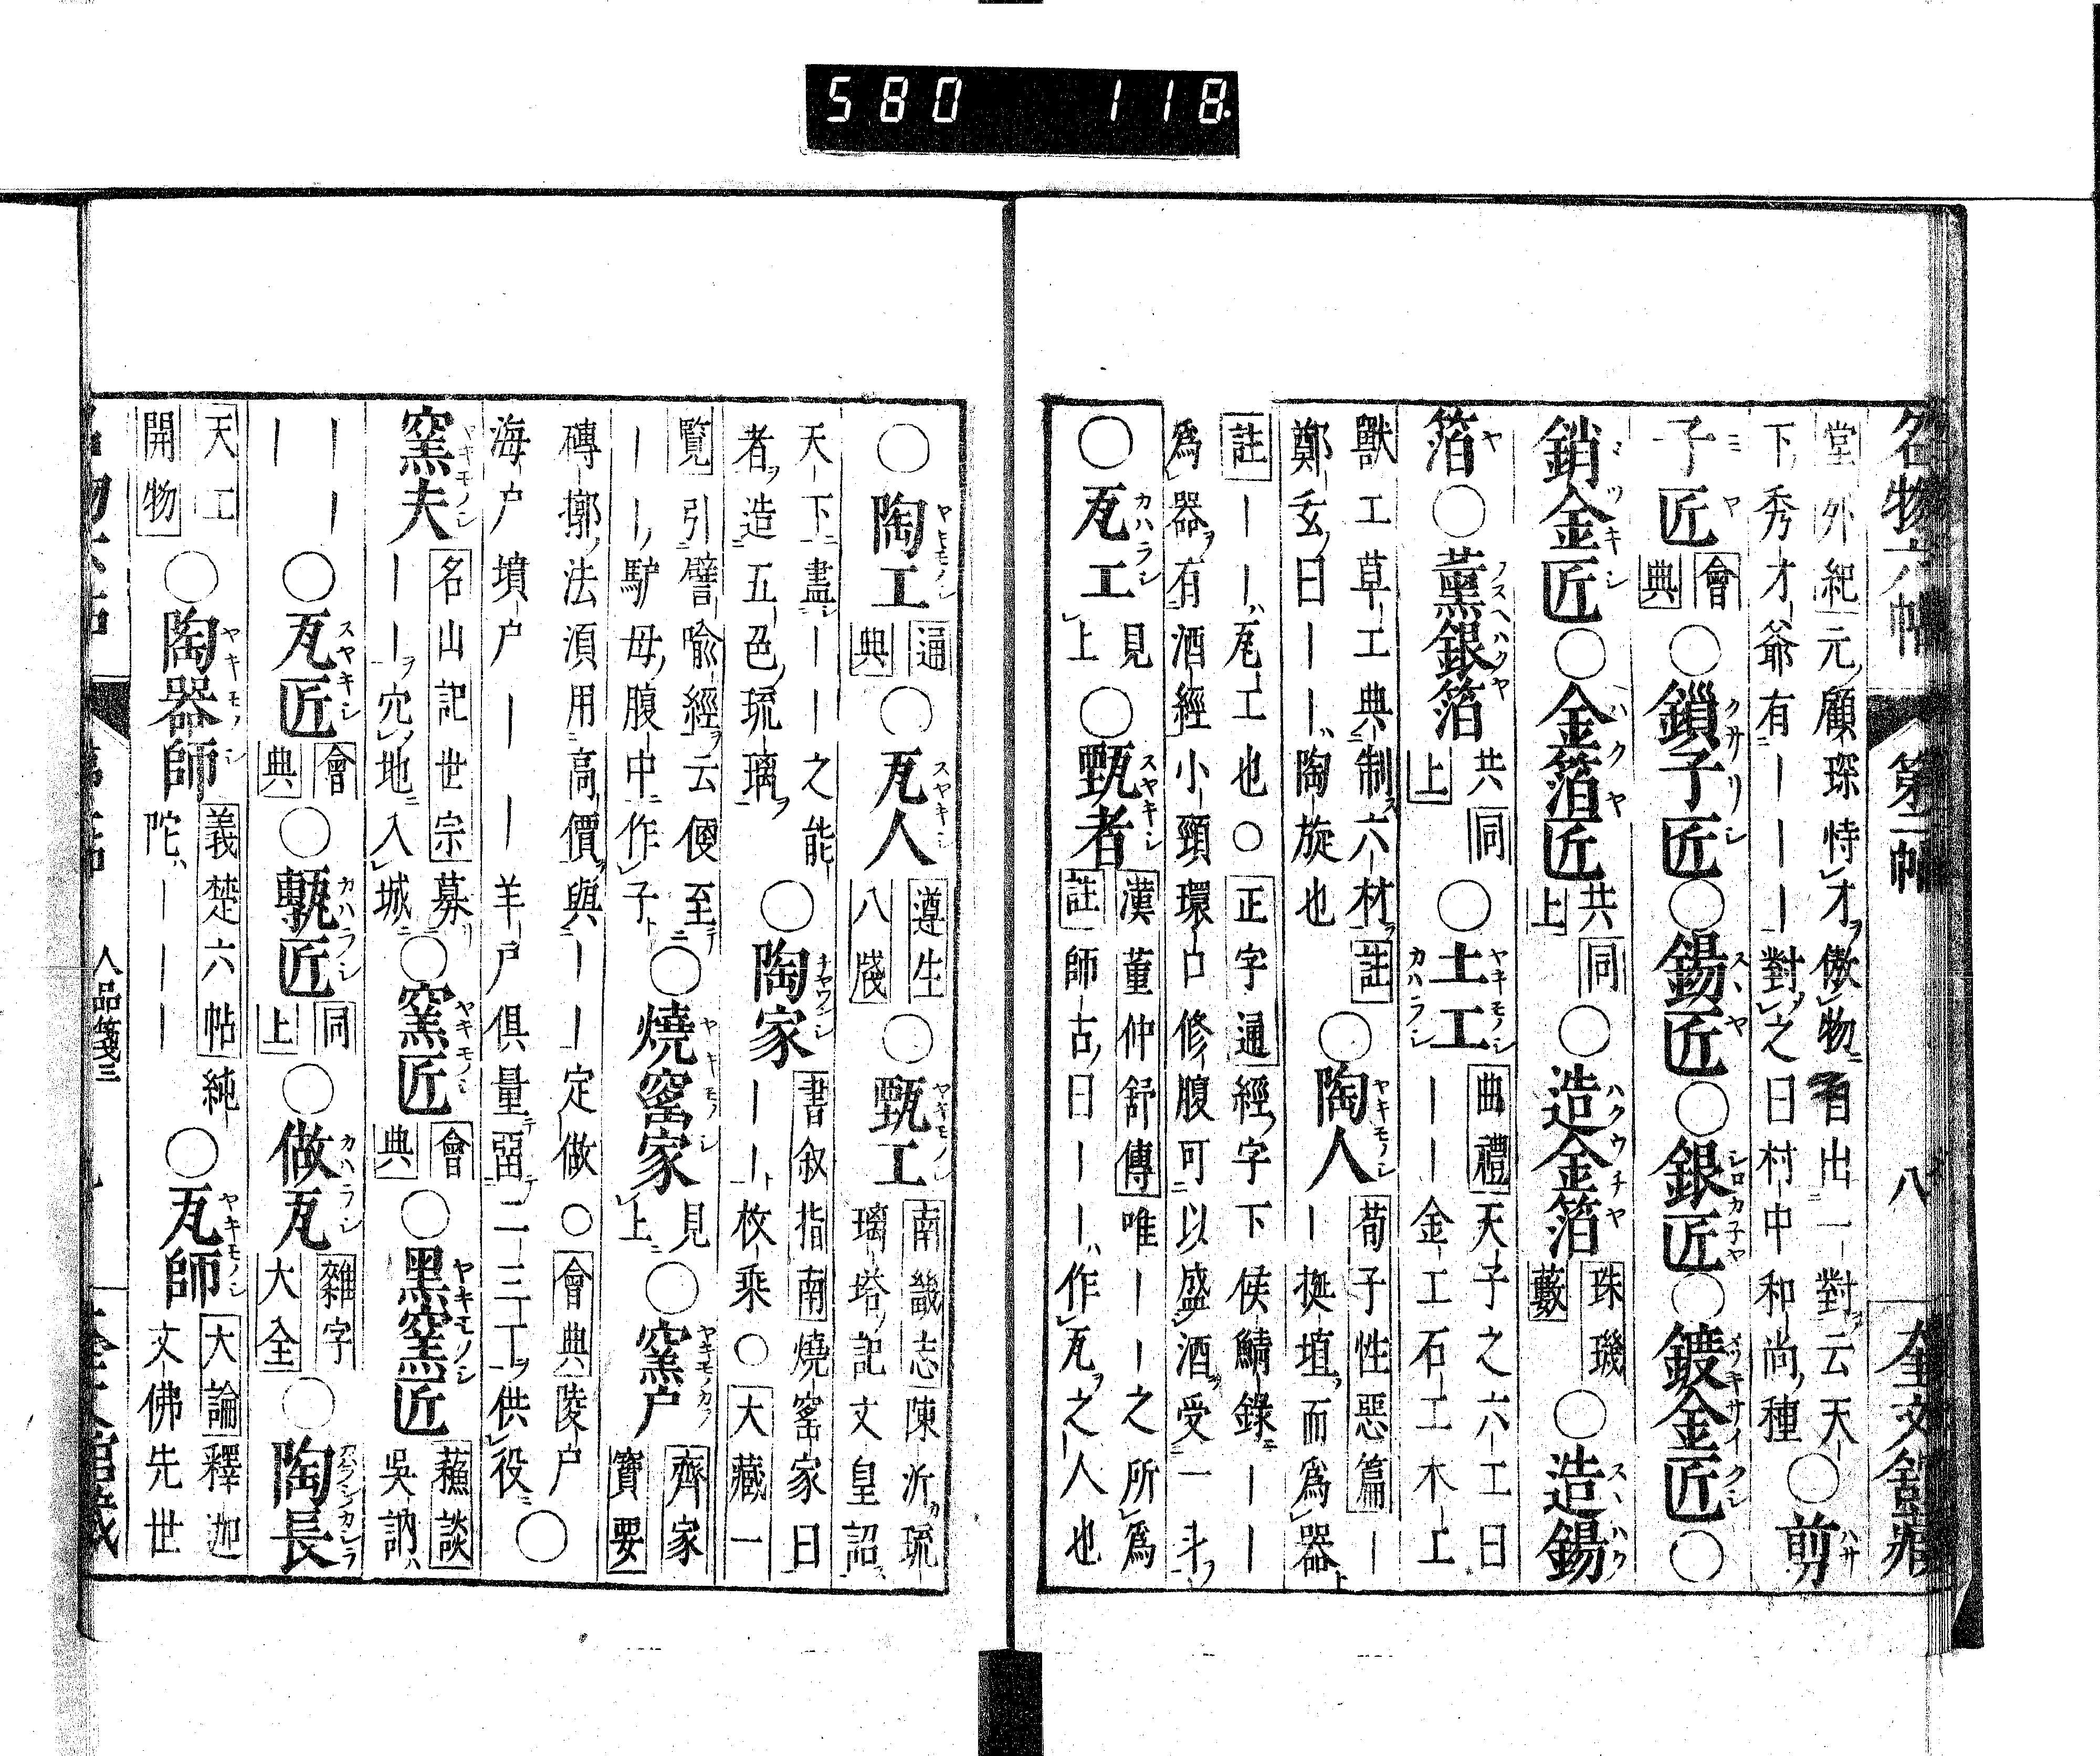 580 118
名物六帖 第二帖 八 奎文館藏
堂外紀元顧琛恃才傲物 出一對云天
下秀才爺有｜｜｜對之曰村中和尚種 ○剪
子匠 會典 ○鎖子匠○錫匠○銀匠○鍍金匠○
銷金匠○金箔匠 共同上 ○造金箔 珠璣藪 ○造錫
箔○薰銀箔 共同上 ○土工 曲禮天子之六工曰
｜｜金工石工木工
獸工草工典制六材註 ○陶人 荀子性惡篇｜
鄭玄曰｜｜陶旋也 ｜埏埴而爲器
註｜｜瓦工也○正字通經字下侯鯖錄｜｜
爲器有酒經小頸環口修腹可以盛酒受一斗
○瓦工 見上 ○甄者 漢董仲舒傳唯｜｜之所爲
註師古曰｜｜作瓦之人也
○陶工 通典 ○瓦人 遵生八牋 ○甄工 南畿志陳沂琉
璃塔記文皇詔
天下盡｜｜之能 ○陶家 書叙指南燒窰家曰
者造五色琉璃 ｜｜枚乘○大藏一
覽引譬喻經云便至 ○燒窰家 見上 ○窯户 齊家寶要
｜｜驴母腹中作子
磚擲法須用高價與｜｜定做○會典陵户
海户墳户｜｜羊户俱量留二三丁供役 ○
窯夫 名山記世宗募 ○窯匠 會典 ○黑窯匠 蘓談
｜｜穴地入城 吳訥
｜｜
｜｜ ○瓦匠 會典 ○甎匠 同上 ○做瓦 雜字大全 ○陶長
天工開物 ○陶器師 義楚六帖純 ○瓦師 大論釋迦
陀｜｜｜ 文佛先世
人品箋三